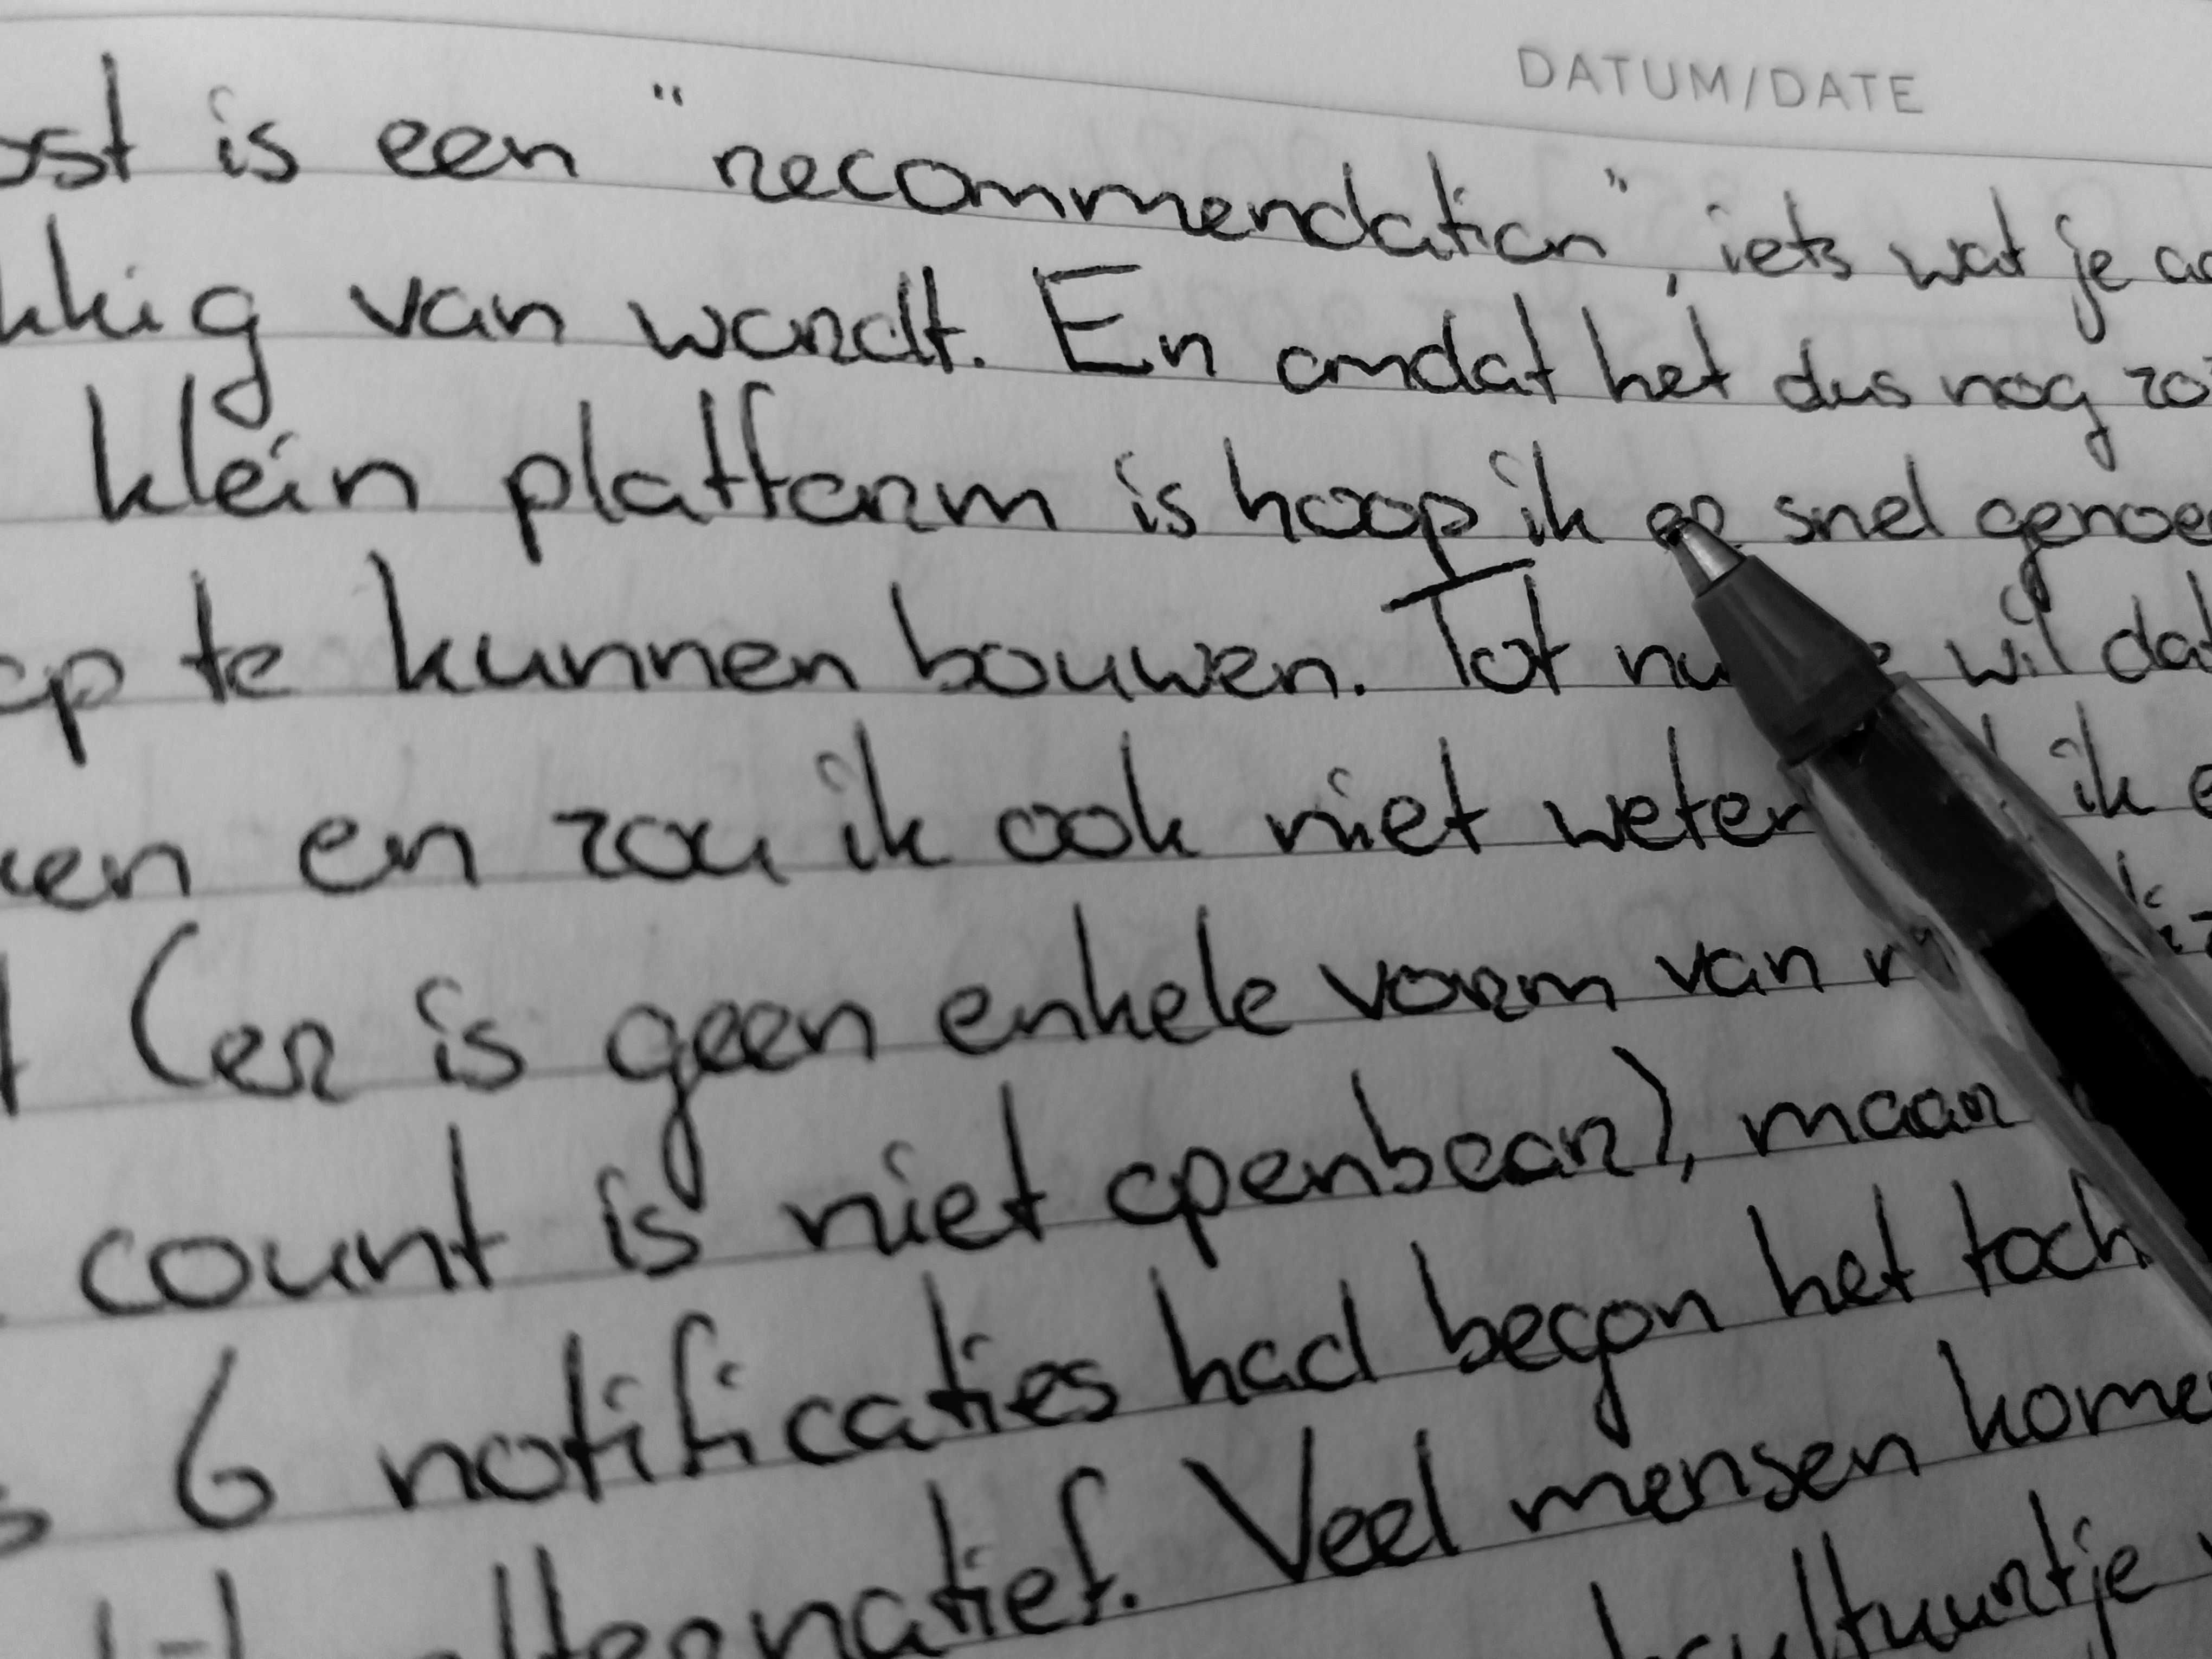 DATUM/DATE
is een "recommendation", iets wat je
van wordt. En omdat het dus nog
klein platform is hoop ik er snel
op te kunnen bouwen. Tot nu wil dat
en zou ik ook niet weten ik
(er is geen enkele vorm van
count is niet openbaar), maar
6 notificaties had begon het toch
alternatief. Veel mensen
cultuurtje